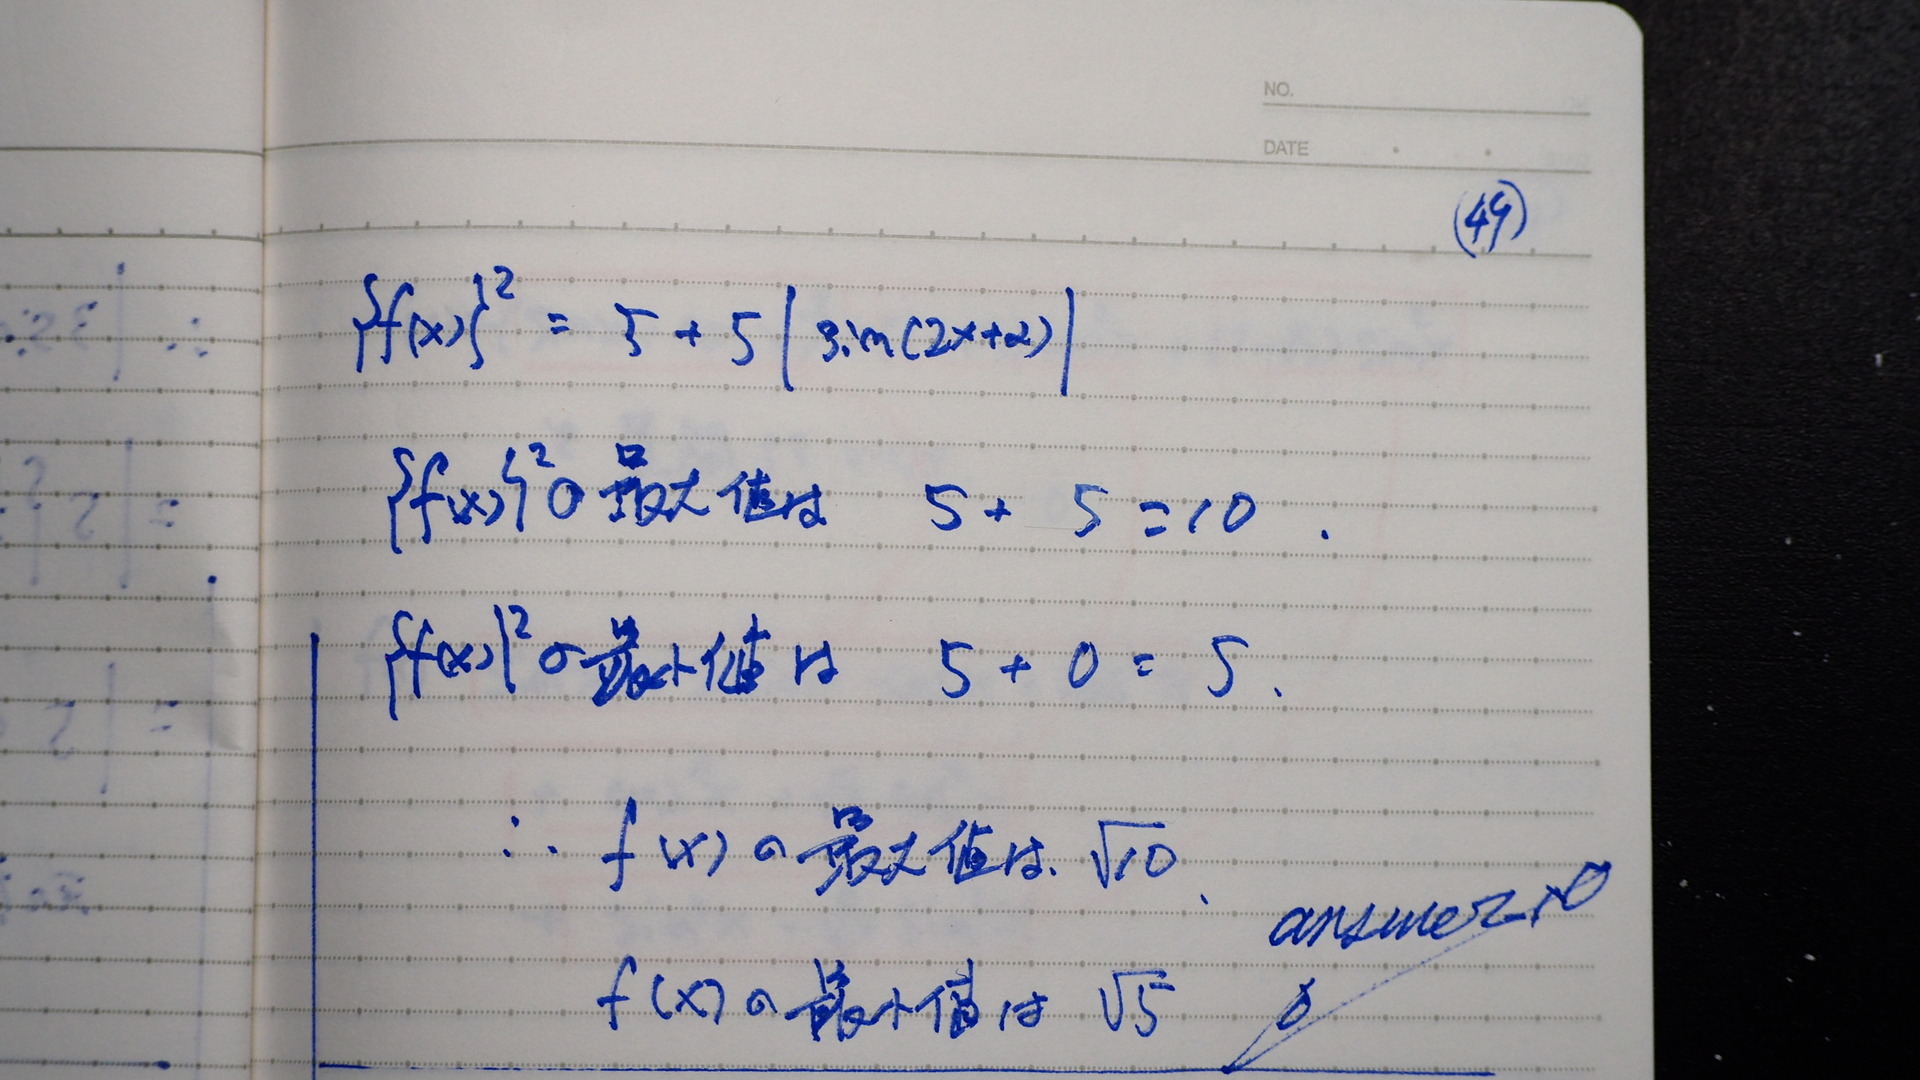 NO.
DATE
(49)
{f(x)}² = 5 + 5|sin(2x+α)|
{f(x)}²の最大値は 5 + 5 = 10.
{f(x)}²の最小値は 5 + 0 = 5.
∴ f(x)の最大値は √10.
answer
f(x)の最小値は √5